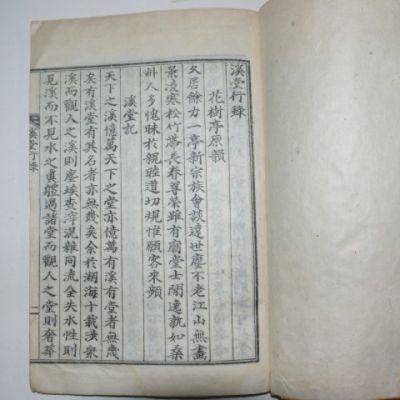 溪堂行錄
花樹亭原韻
久居餘力一亭新宗族會談遠世塵不老江山無盡
景凌寒松竹帶長春尊榮雖有廟堂士閒逸孰如桑
梓人多愧昧於親睦道切規惟願客來頻
溪堂記
天下之溪億萬天下之堂亦億萬有溪有堂者無幾
矣有溪堂有其名者亦無幾矣余於湖海十載洪衆
溪而觀人之溪則塵埃查滓混雜同流全失水性則
見溪而不見水之眞軆過諸堂而觀人之堂則奢華
溪堂行錄
二